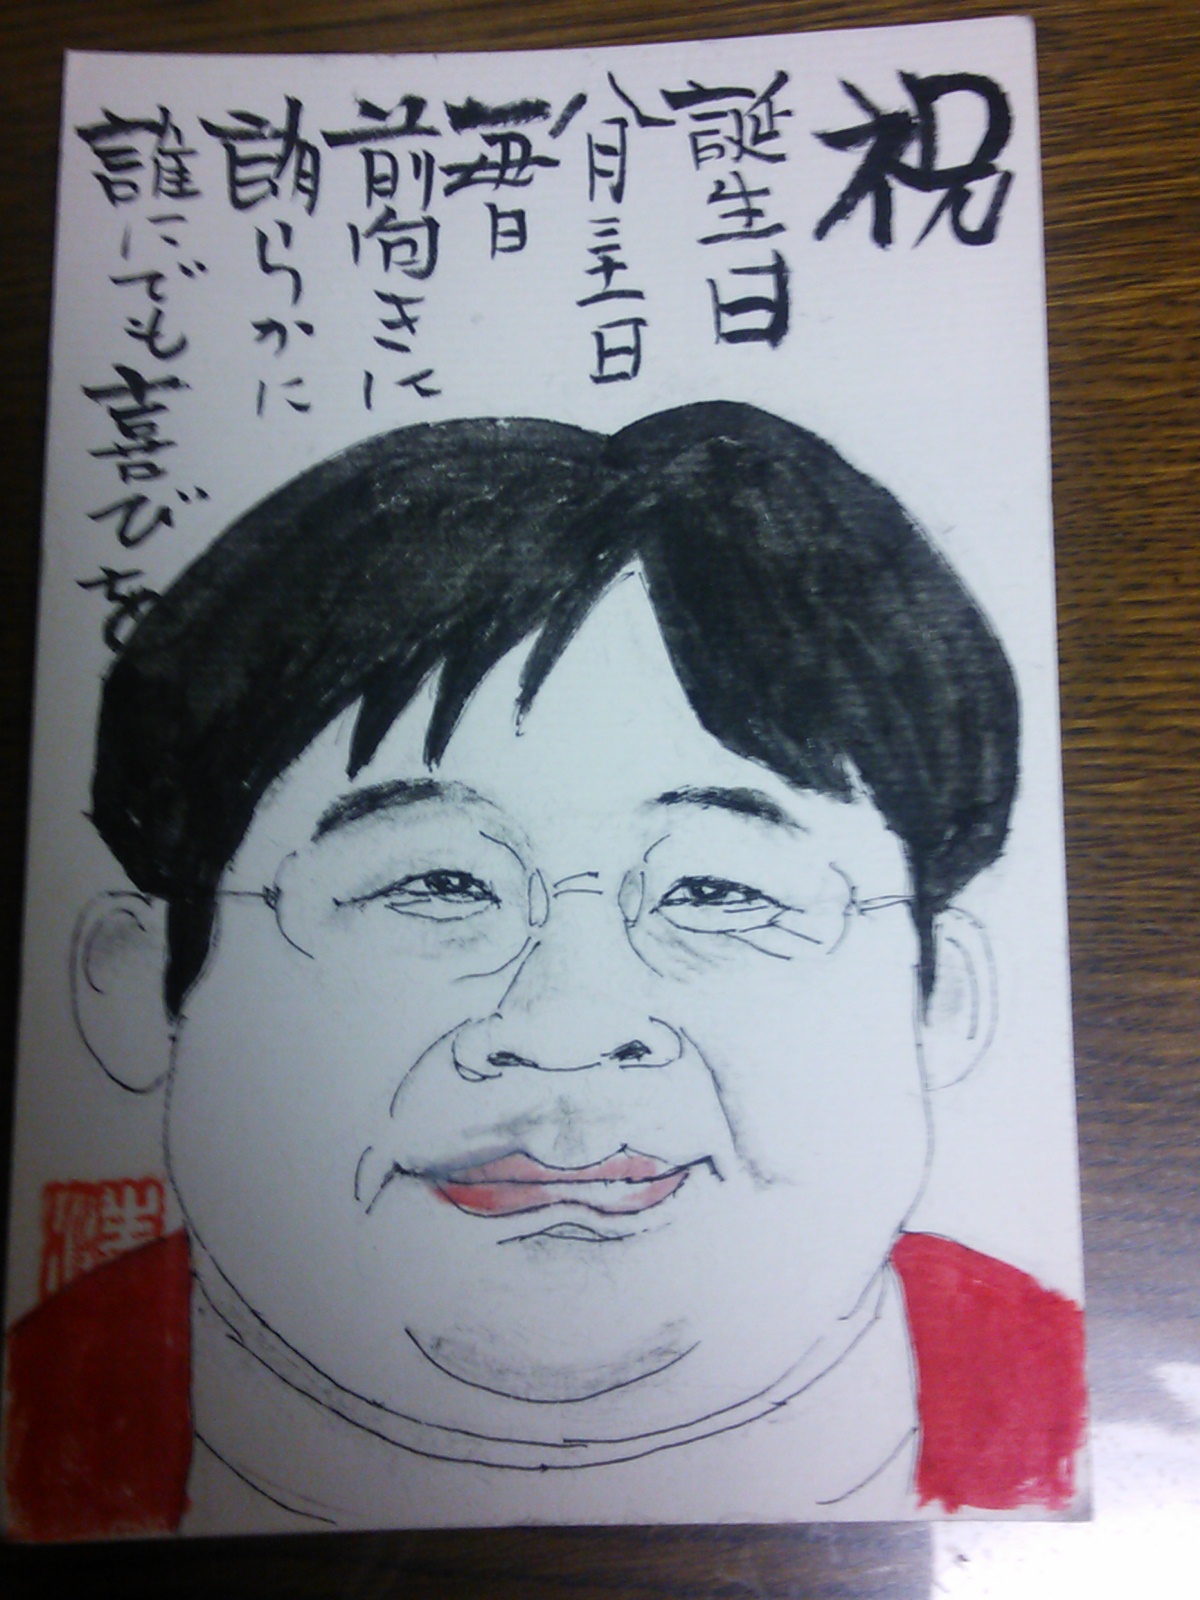 祝
誕生日
八月三十一日
毎日
前向きに
朗らかに
誰にでも喜びを